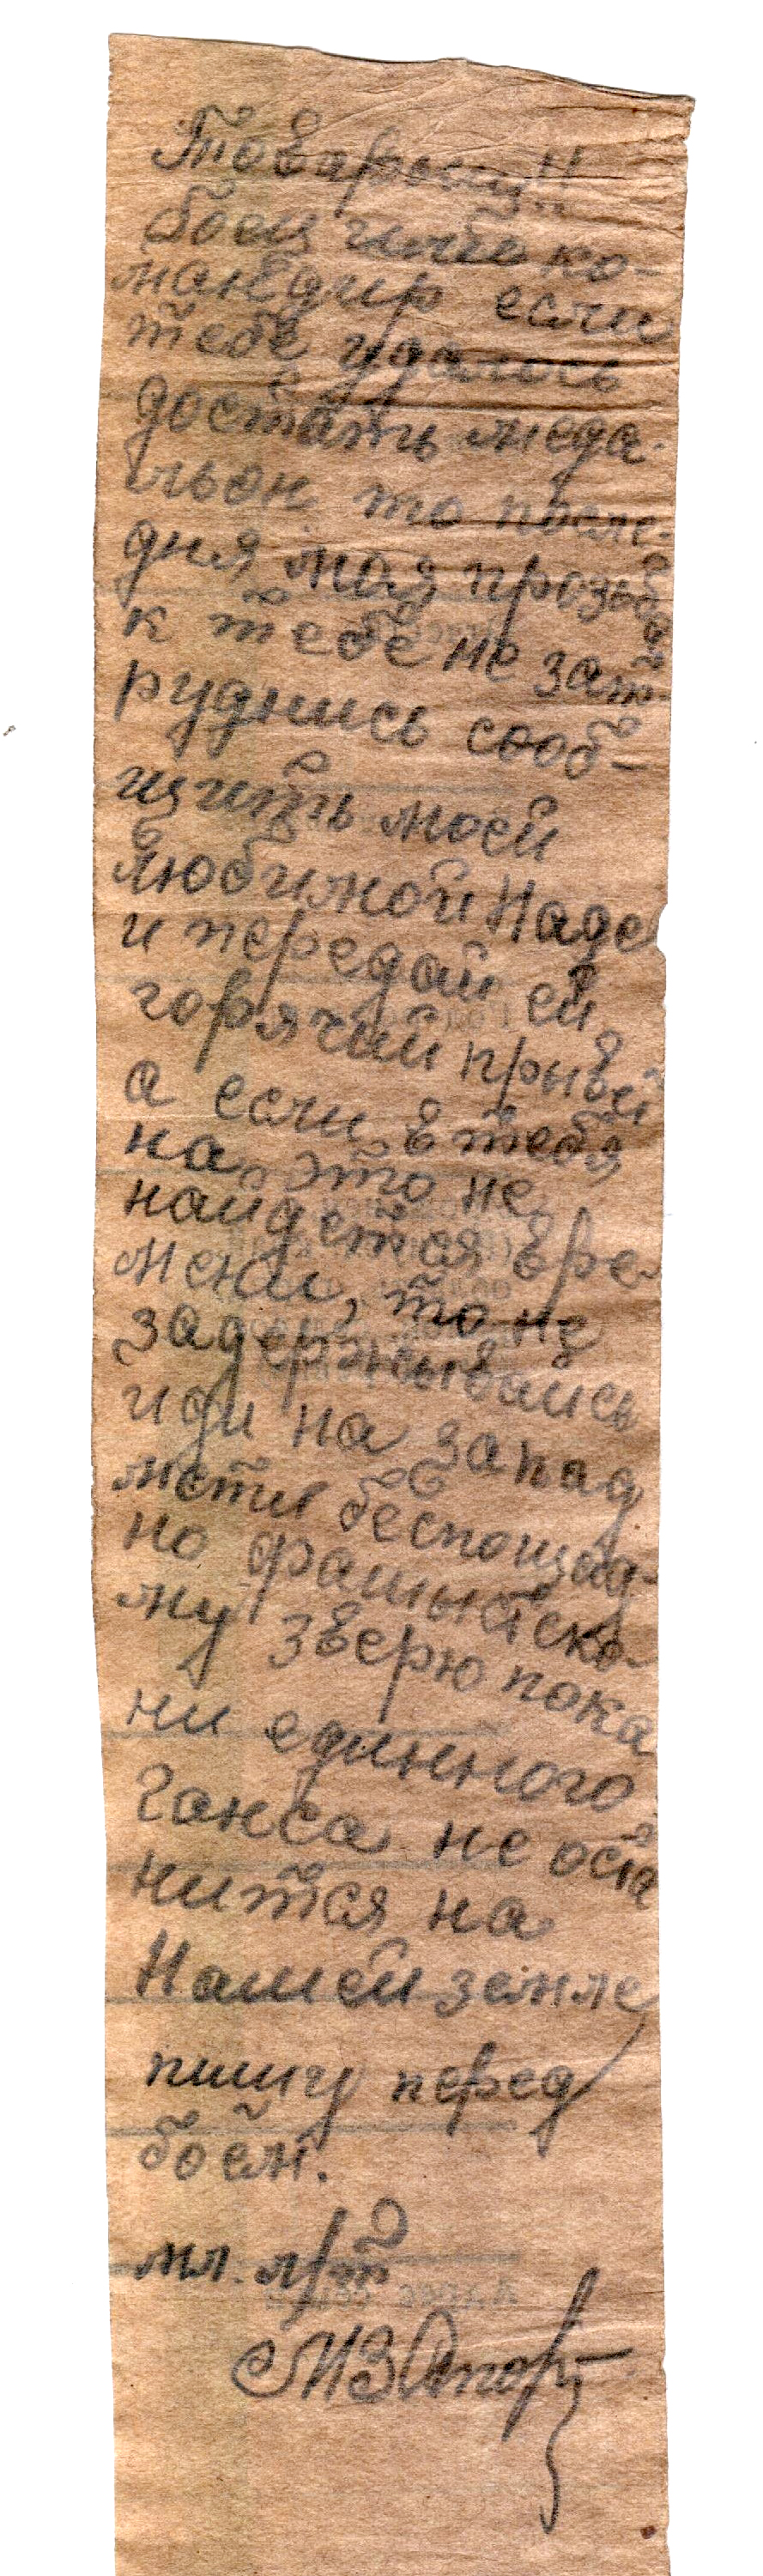 Товарищ!!
боец либо ко-
мандир если
тебе удалось
достать меда-
льон то после-
дня моя прозьба
к тебе не зат-
руднись сооб-
щить моей
любимой Наде
и передай ей
горячий прывет
а если в тебя
на это не
найдется вре-
мени, то не
задержывайсь
иди на запад
мсти беспощад-
но фашыстско-
му зверю пока
ни единного
Ганса не оста
нится на
Нашей земле
пишу перед
боем.
мл. л/т